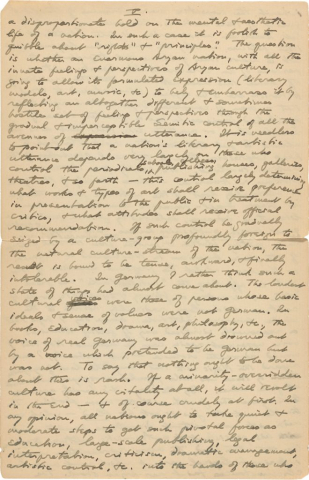 V.
a disproportionate hold on the mental & aesthetic
life of a nation. In such a case it is foolish to
quibble about "rights" & "principles". The question
is whether an enormous Aryan nation, with all the
innate feelings & perspectives of Aryan culture, is
going to allow its formulated expression (literary
models, art, music, &c) to belie & embarrass it by
reflecting an altogether different & sometimes
hostile set of feelings & perspectives through the
gradual & imperceptible Semitic control of all the
avenues of utterance. It is needless
to point out that a nation's literary & artistic
utterance depends very largely on those who
control the periodicals, schools, colleges, publishing houses, galleries,
theatres, & so forth — this control largely determining
what works & types of art shall receive preference
in presentation to the public & in treatment by
critics, & what attitudes shall receive official
recommendation. If such control be gradually
seized by a culture-group profoundly foreign to
the natural culture-stream of the nation, the
result is bound to be tense, awkward, & finally
intolerable. In Germany I rather think such a
state of things had almost come about. The loudest
cultural voices were those of persons whose basic
ideals & sense of values were not German. In
books, education, drama, art, philosophy, &c., the
voice of real Germany was almost drowned out
by a voice which pretended to be German but
was not. To say that nothing ought to be done
about this is rash. If a minority-overridden
culture has any vitality at all, it will revolt
in the end — & of course crudely at first. In
my opinion, all nations ought to take quiet &
moderate steps to get such pivotal forces as
education, large-scale publishing, legal
interpretation, criticism, dramatic management,
artistic control, &c. into the hands of those who